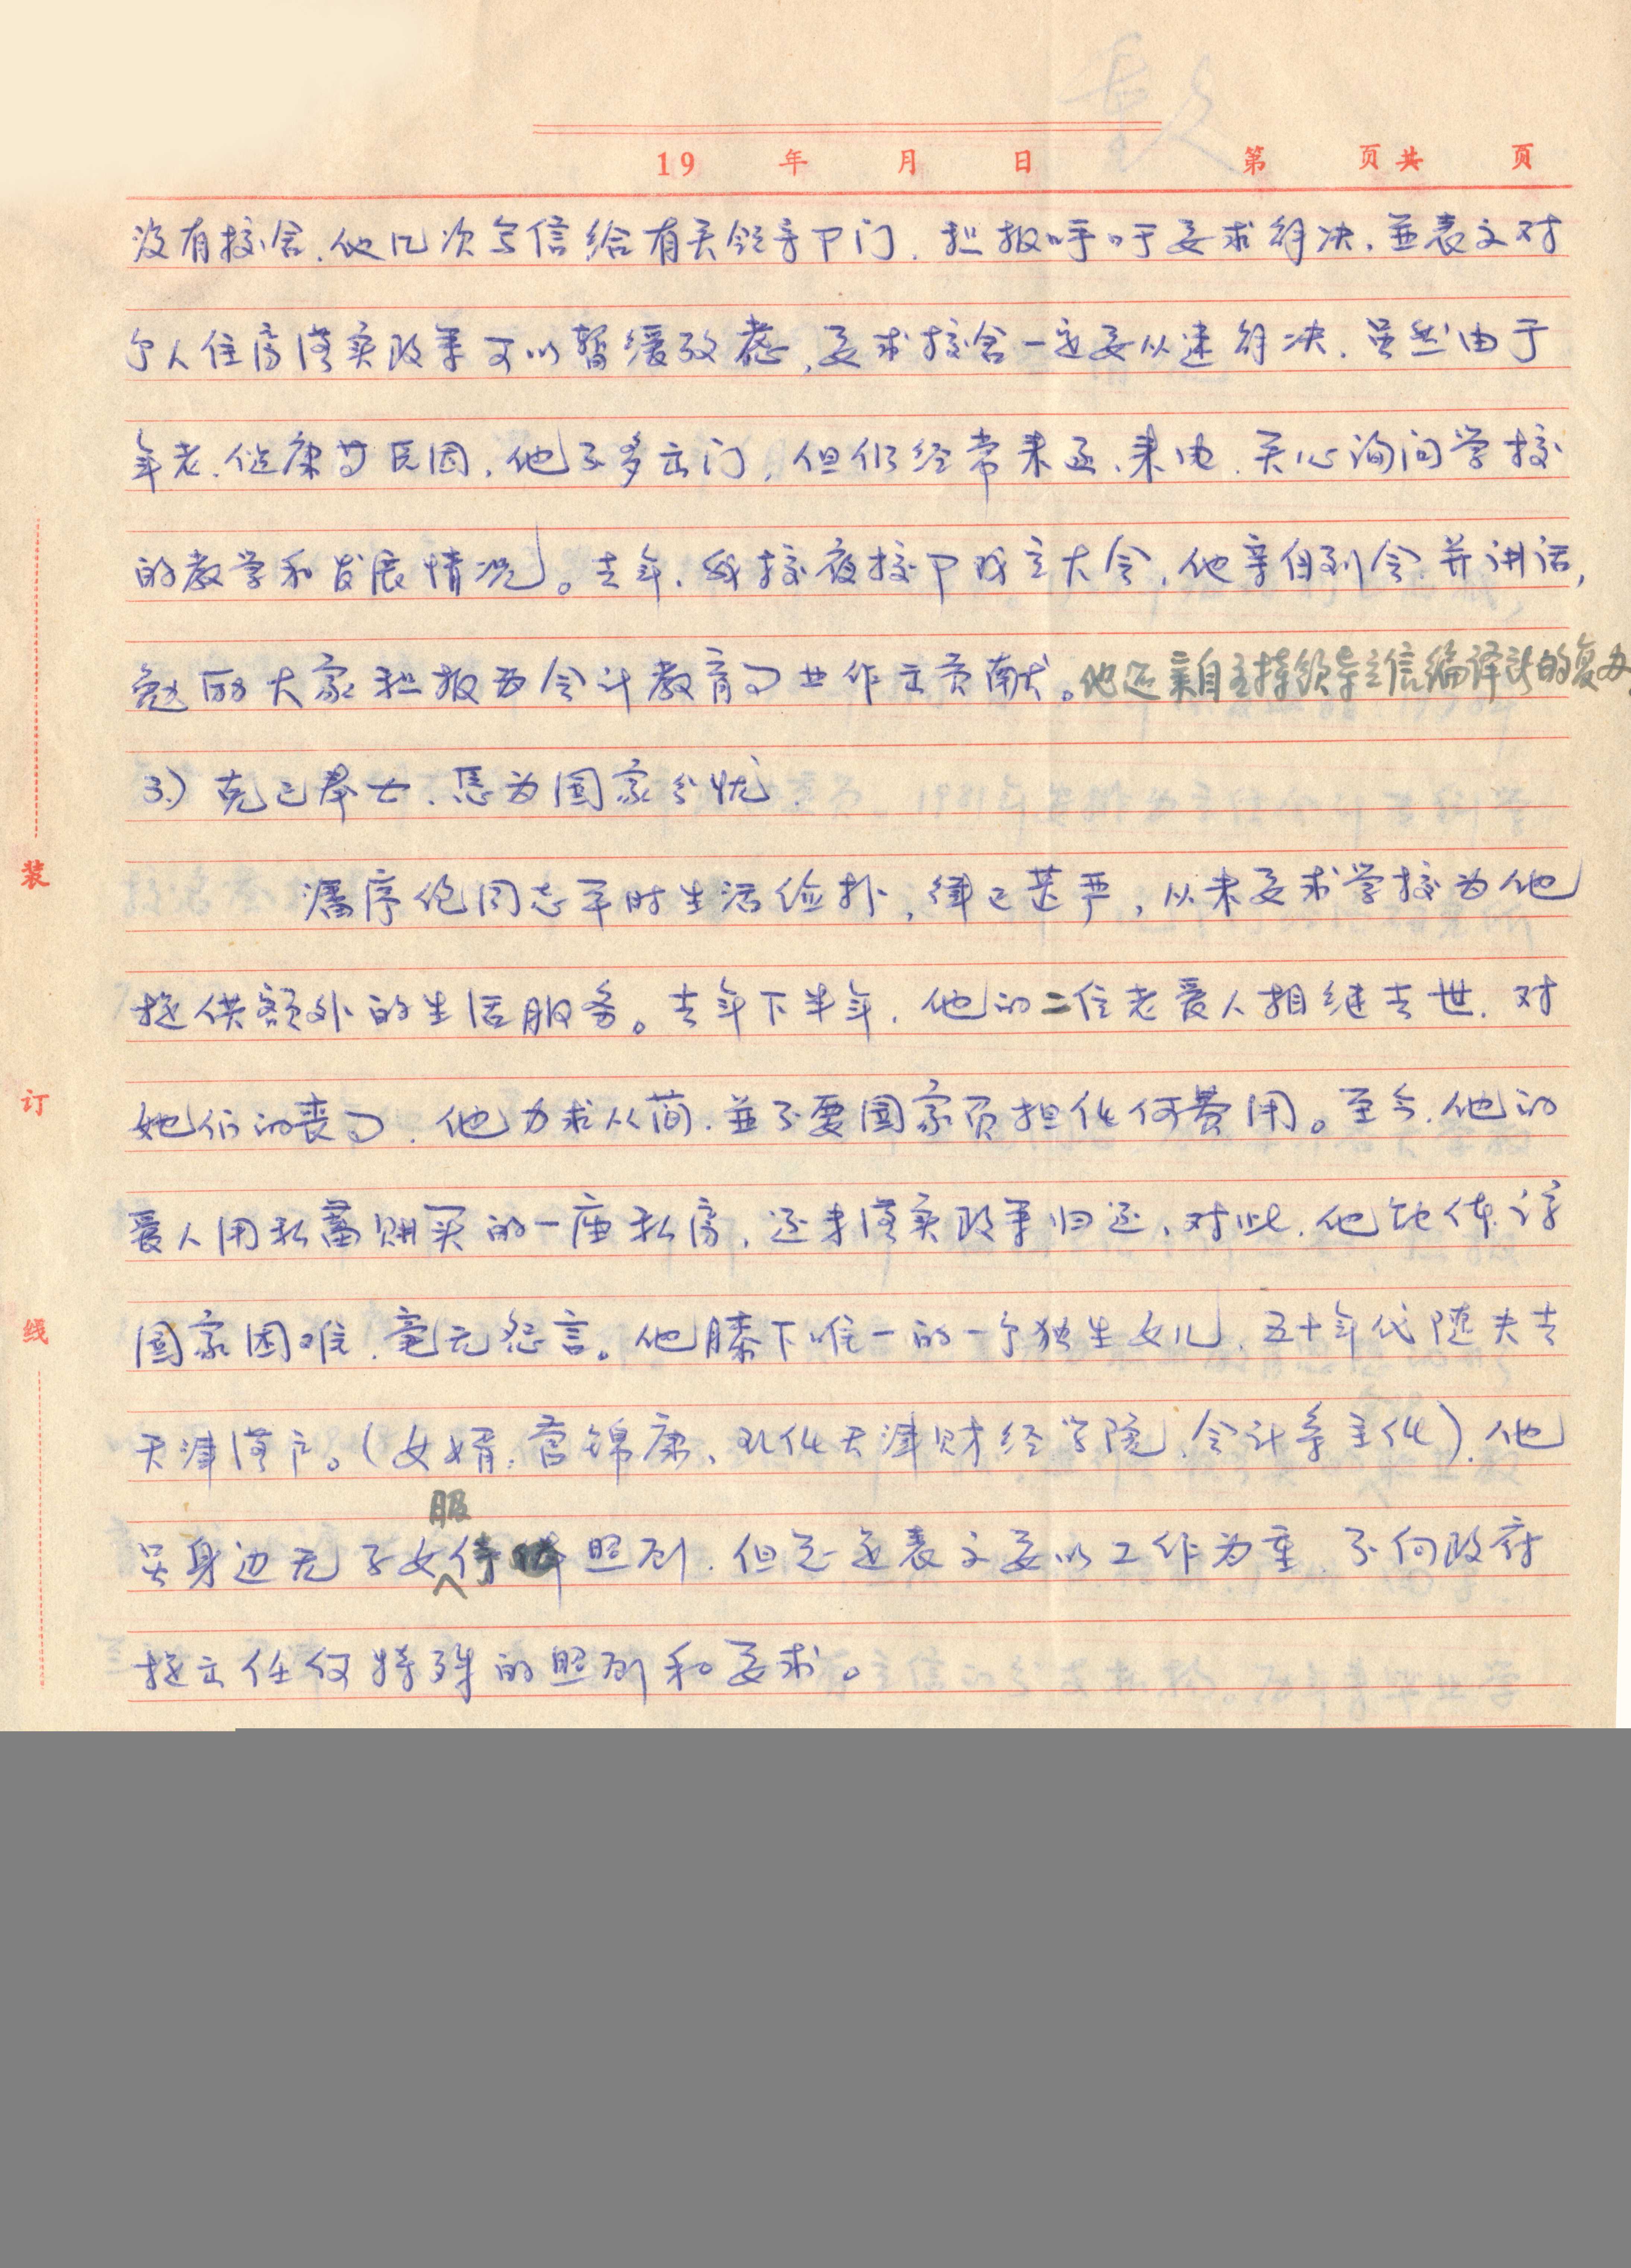 19 年 月 日 第 页共 页
没有校舍.他几次写信给有关领导卩门.积极呼吁要求解决.並表文对
个人住房落实政策可以暂缓考虑,要求校舍一定要从速解决.虽然由于
年老.健康等原因.他不多出门,但仍经常来函、来电.关心询问学校
的教学和发展情况。去年.我校夜校卩成立大会,他亲自到会并讲话,
勉励大家积极为会计教育事业作出贡献。他还亲自主持领导立信编译所的复办.
3.)克己奉公.愿为国家分忧.
潘序伦同志平时生活俭朴,律己甚严,从未要求学校为他
提供额外的生活服务。去年下半年.他的二位老爱人相继去世.对
她们的丧事.他力求从简.並不要国家负担任何费用。至今.他的
爱人用私蓄购买的一座私房.还未落实政策归还、对此.他能体谅
国家困难.毫无怨言。他膝下唯一的一个独生女儿.五十年代随夫去
天津落户。(女婿:营锦康、现任天津财经学院.会计系主任).他
虽身边无子女服侍照顾.但总是表文要以工作为重.不向政府
提出任何特殊的照顾和要求。
装
订
线